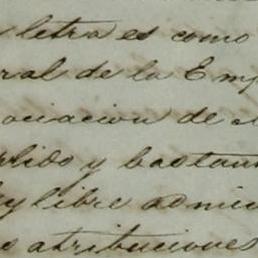 letra es como
ral de la Emp
ociacion de
plido y bastan
y libre admin
s atribuciones